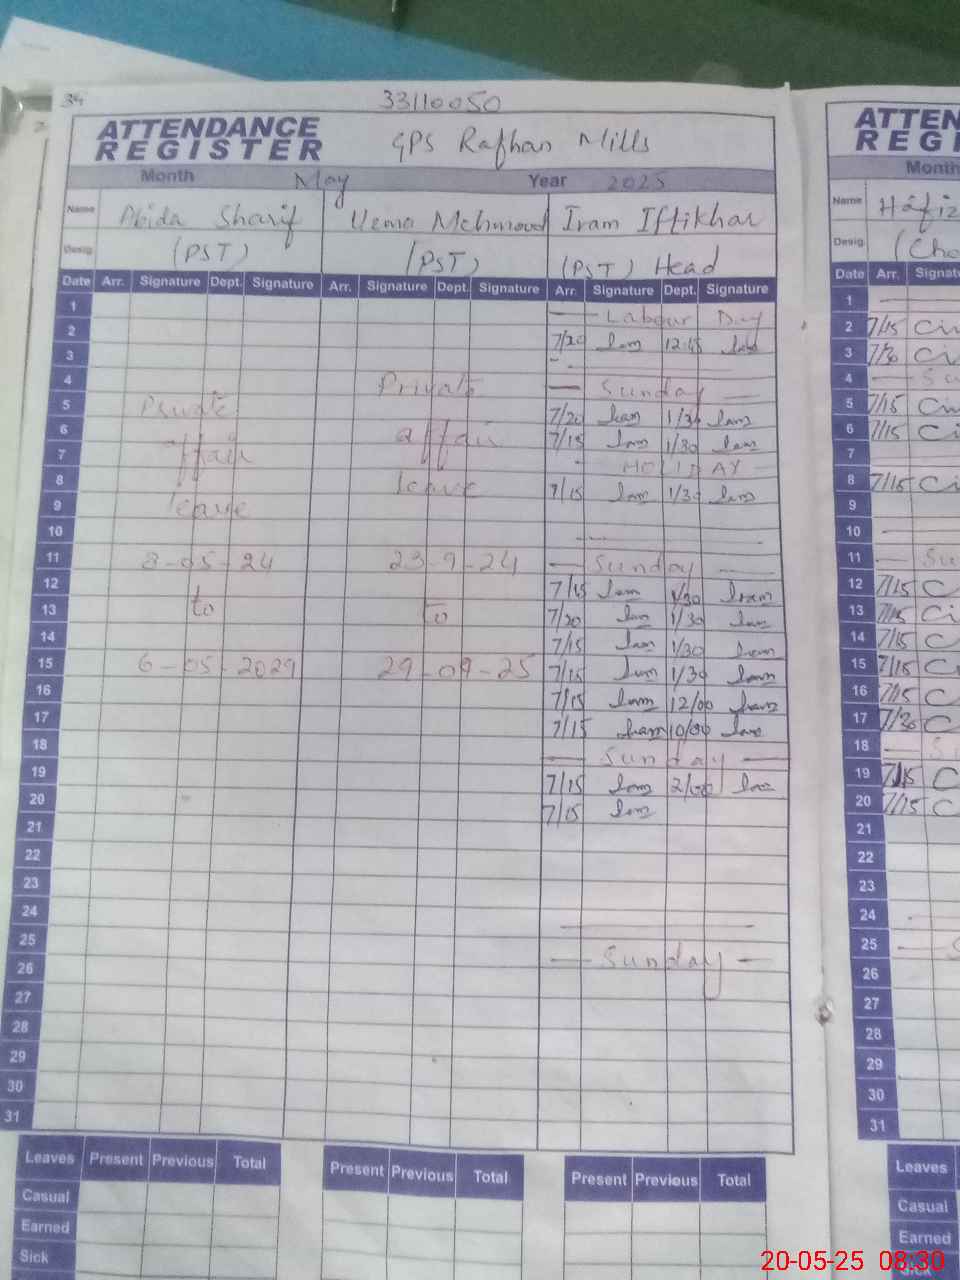 34
33110050
ATTENDANCE REGISTER
GPS Rafhan Mills
Month May Year 2025
Name Abida Sharif Uzma Mehmood Iram Iftikhar
Desig. (PST) (PST) (PST) Head
Date Arr. Signature Dept. Signature Arr. Signature Dept. Signature Arr. Signature Dept. Signature
1 — Labour Day
2 7/20 12:45
3
4 Private — Sunday —
5 Private 7/20 1/30
6 affair 7/15 1/30
7 affair HOLIDAY
8 leave 7/15 1/30
9 leave
10
11 8-05-24 23-9-24 — Sunday —
12 7/15 1/30
13 to to 7/20 1/30
14 7/15 1/30
15 6-05-2029 29-09-25 7/15 1/30
16 7/15 12/00
17 7/15 10/00
18 — Sunday —
19 7/15 2/00
20 7/15
21
22
23
24
25 — Sunday —
26
27
28
29
30
31
Leaves Present Previous Total Present Previous Total Present Previous Total
Casual
Earned
Sick
ATTEN
REGI
Month
Name Hafiz
Desig. (Cho
Date Arr. Signat
1
2 7/15
3 7/30
4 — Su
5 7/15
6 7/15
7
8 7/15
9
10
11 — Su
12 7/15
13 7/15
14 7/15
15 7/15
16 7/15
17 7/30
18 — S
19 7/15
20 7/15
21
22
23
24
25 — S
26
27
28
29
30
31
Leaves
Casual
Earned
Sick
20-05-25 08:30